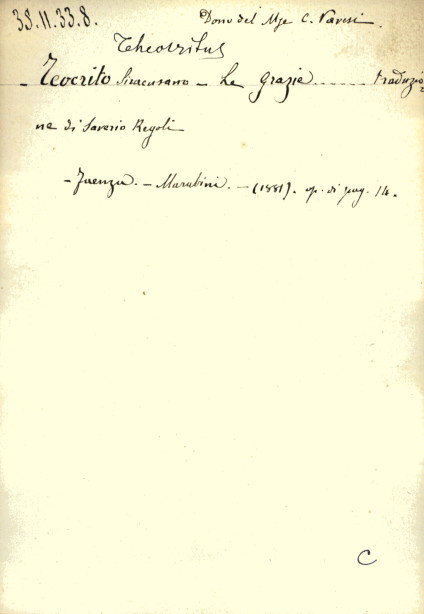 38.11.33.8.
Dono del Mse C. Varesi.
Theocritus
- Teocrito Siracusano - Le grazie ...... traduzio
ne di Saverio Regoli
- Faenza. - Marabini. - (1881). op. di pag. 14.
C